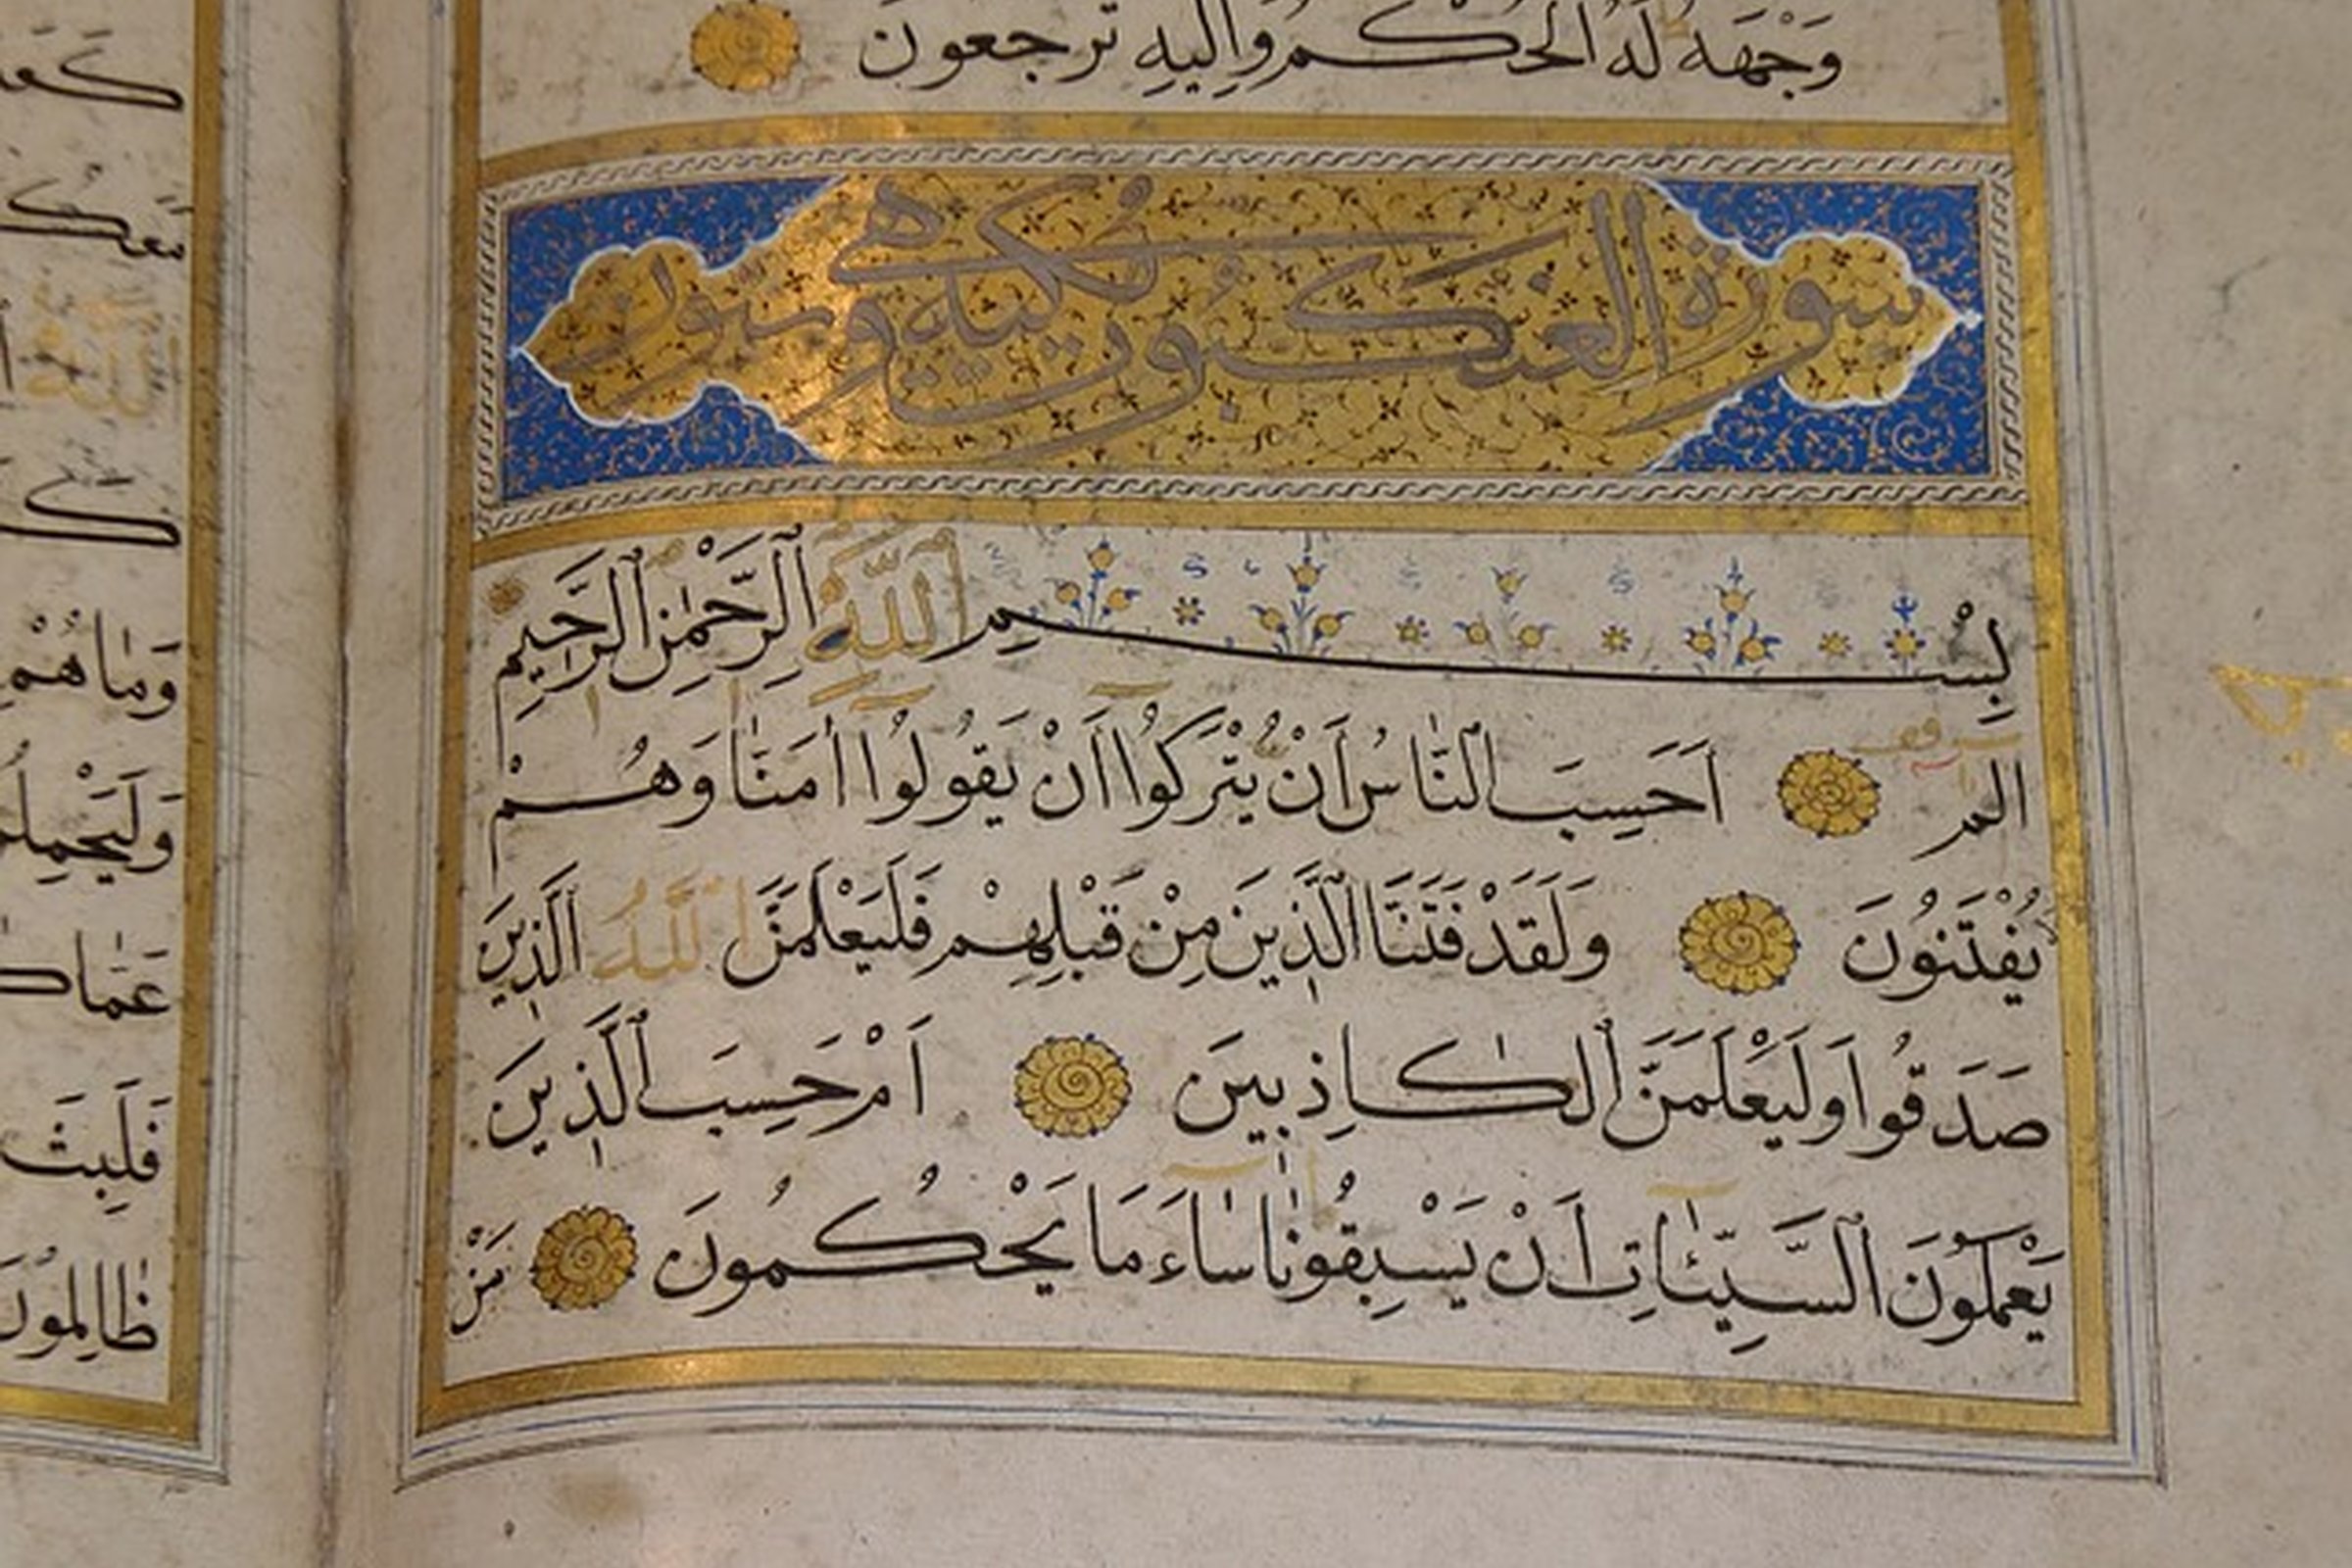 وَجْهَهُ لَهُ الْحُكْمُ وَإِلَيْهِ تُرْجَعُونَ
سورة العنكبوت مكية وهي ستون
بِسْمِ اللَّهِ الرَّحْمٰنِ الرَّحِيمِ
الم أَحَسِبَ النَّاسُ أَنْ يُتْرَكُوا أَنْ يَقُولُوا اٰمَنَّا وَهُمْ
يُفْتَنُونَ وَلَقَدْ فَتَنَّا الَّذِينَ مِنْ قَبْلِهِمْ فَلَيَعْلَمَنَّ اللَّهُ الَّذِينَ
صَدَقُوا وَلَيَعْلَمَنَّ الْكَاذِبِينَ اَمْ حَسِبَ الَّذِينَ
يَعْمَلُونَ السَّيِّئَاتِ اَنْ يَسْبِقُونَا سَاءَ مَا يَحْكُمُونَ مَنْ
وَمَا هُمْ
عَمَّا
فَلَبِثَ
ظَالِمُونَ